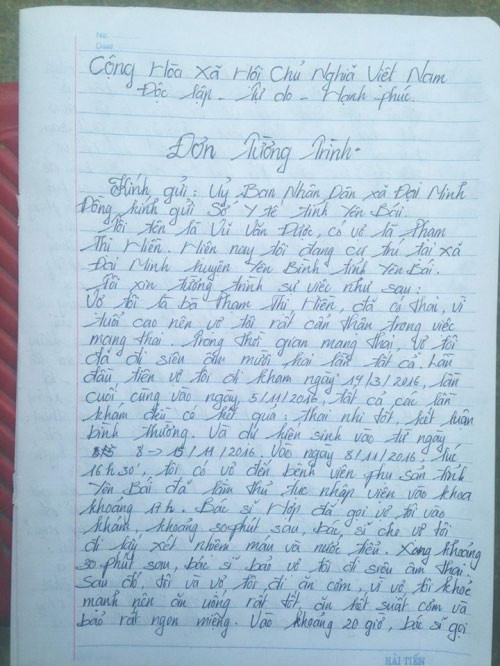 No.
Date
Cộng Hòa Xã Hội Chủ Nghĩa Việt Nam
Độc lập - Tự do - Hạnh phúc.
Đơn Tường Trình.
Kính gửi: Uỷ Ban Nhân Dân xã Đại Minh
Đồng kính gửi Sở Y tế tỉnh Yên Bái.
Tôi tên là Vũ Văn Được, có vợ là Phạm
Thị Hiên. Hiện nay tôi đang cư trú tại xã
Đại Minh huyện Yên Bình tỉnh Yên Bái.
Tôi xin tường trình sự việc như sau:
Vợ tôi là bà Phạm Thị Hiên, đã có thai, vì
tuổi cao nên vợ tôi rất cẩn thận trong việc
mang thai. Trong thời gian mang thai, vợ tôi
đã đi siêu âm mười hai lần tất cả. Lần
đầu tiên vợ tôi đi khám ngày 19/3/2016, lần
cuối cùng vào ngày 5/11/2016, tất cả các lần
khám đều có kết quả: thai nhi tốt, kết luận
bình thường. Và dự kiến sinh vào từ ngày
8 → 15/11/2016. Vào ngày 8/11/2016 lúc
16h30', tôi có về đến bệnh viện phụ sản tỉnh
Yên Bái đã làm thủ tục nhập viện vào khoa
khoảng 17h. Bác sĩ Hợp đã gọi vợ tôi vào
khám, khoảng 30 phút sau, bác sĩ cho vợ tôi
đi lấy xét nhiệm máu và nước tiểu. Xong khoảng
30 phút sau, bác sĩ bảo vợ tôi đi siêu âm thai.
Sau đó, tôi và vợ tôi đi ăn cơm, vì vợ tôi khỏe
mạnh nên ăn uống rất tốt ăn hết suất cơm và
bảo rất ngon miệng. Vào khoảng 20 giờ, bác sĩ gọi
HẢI TIẾN